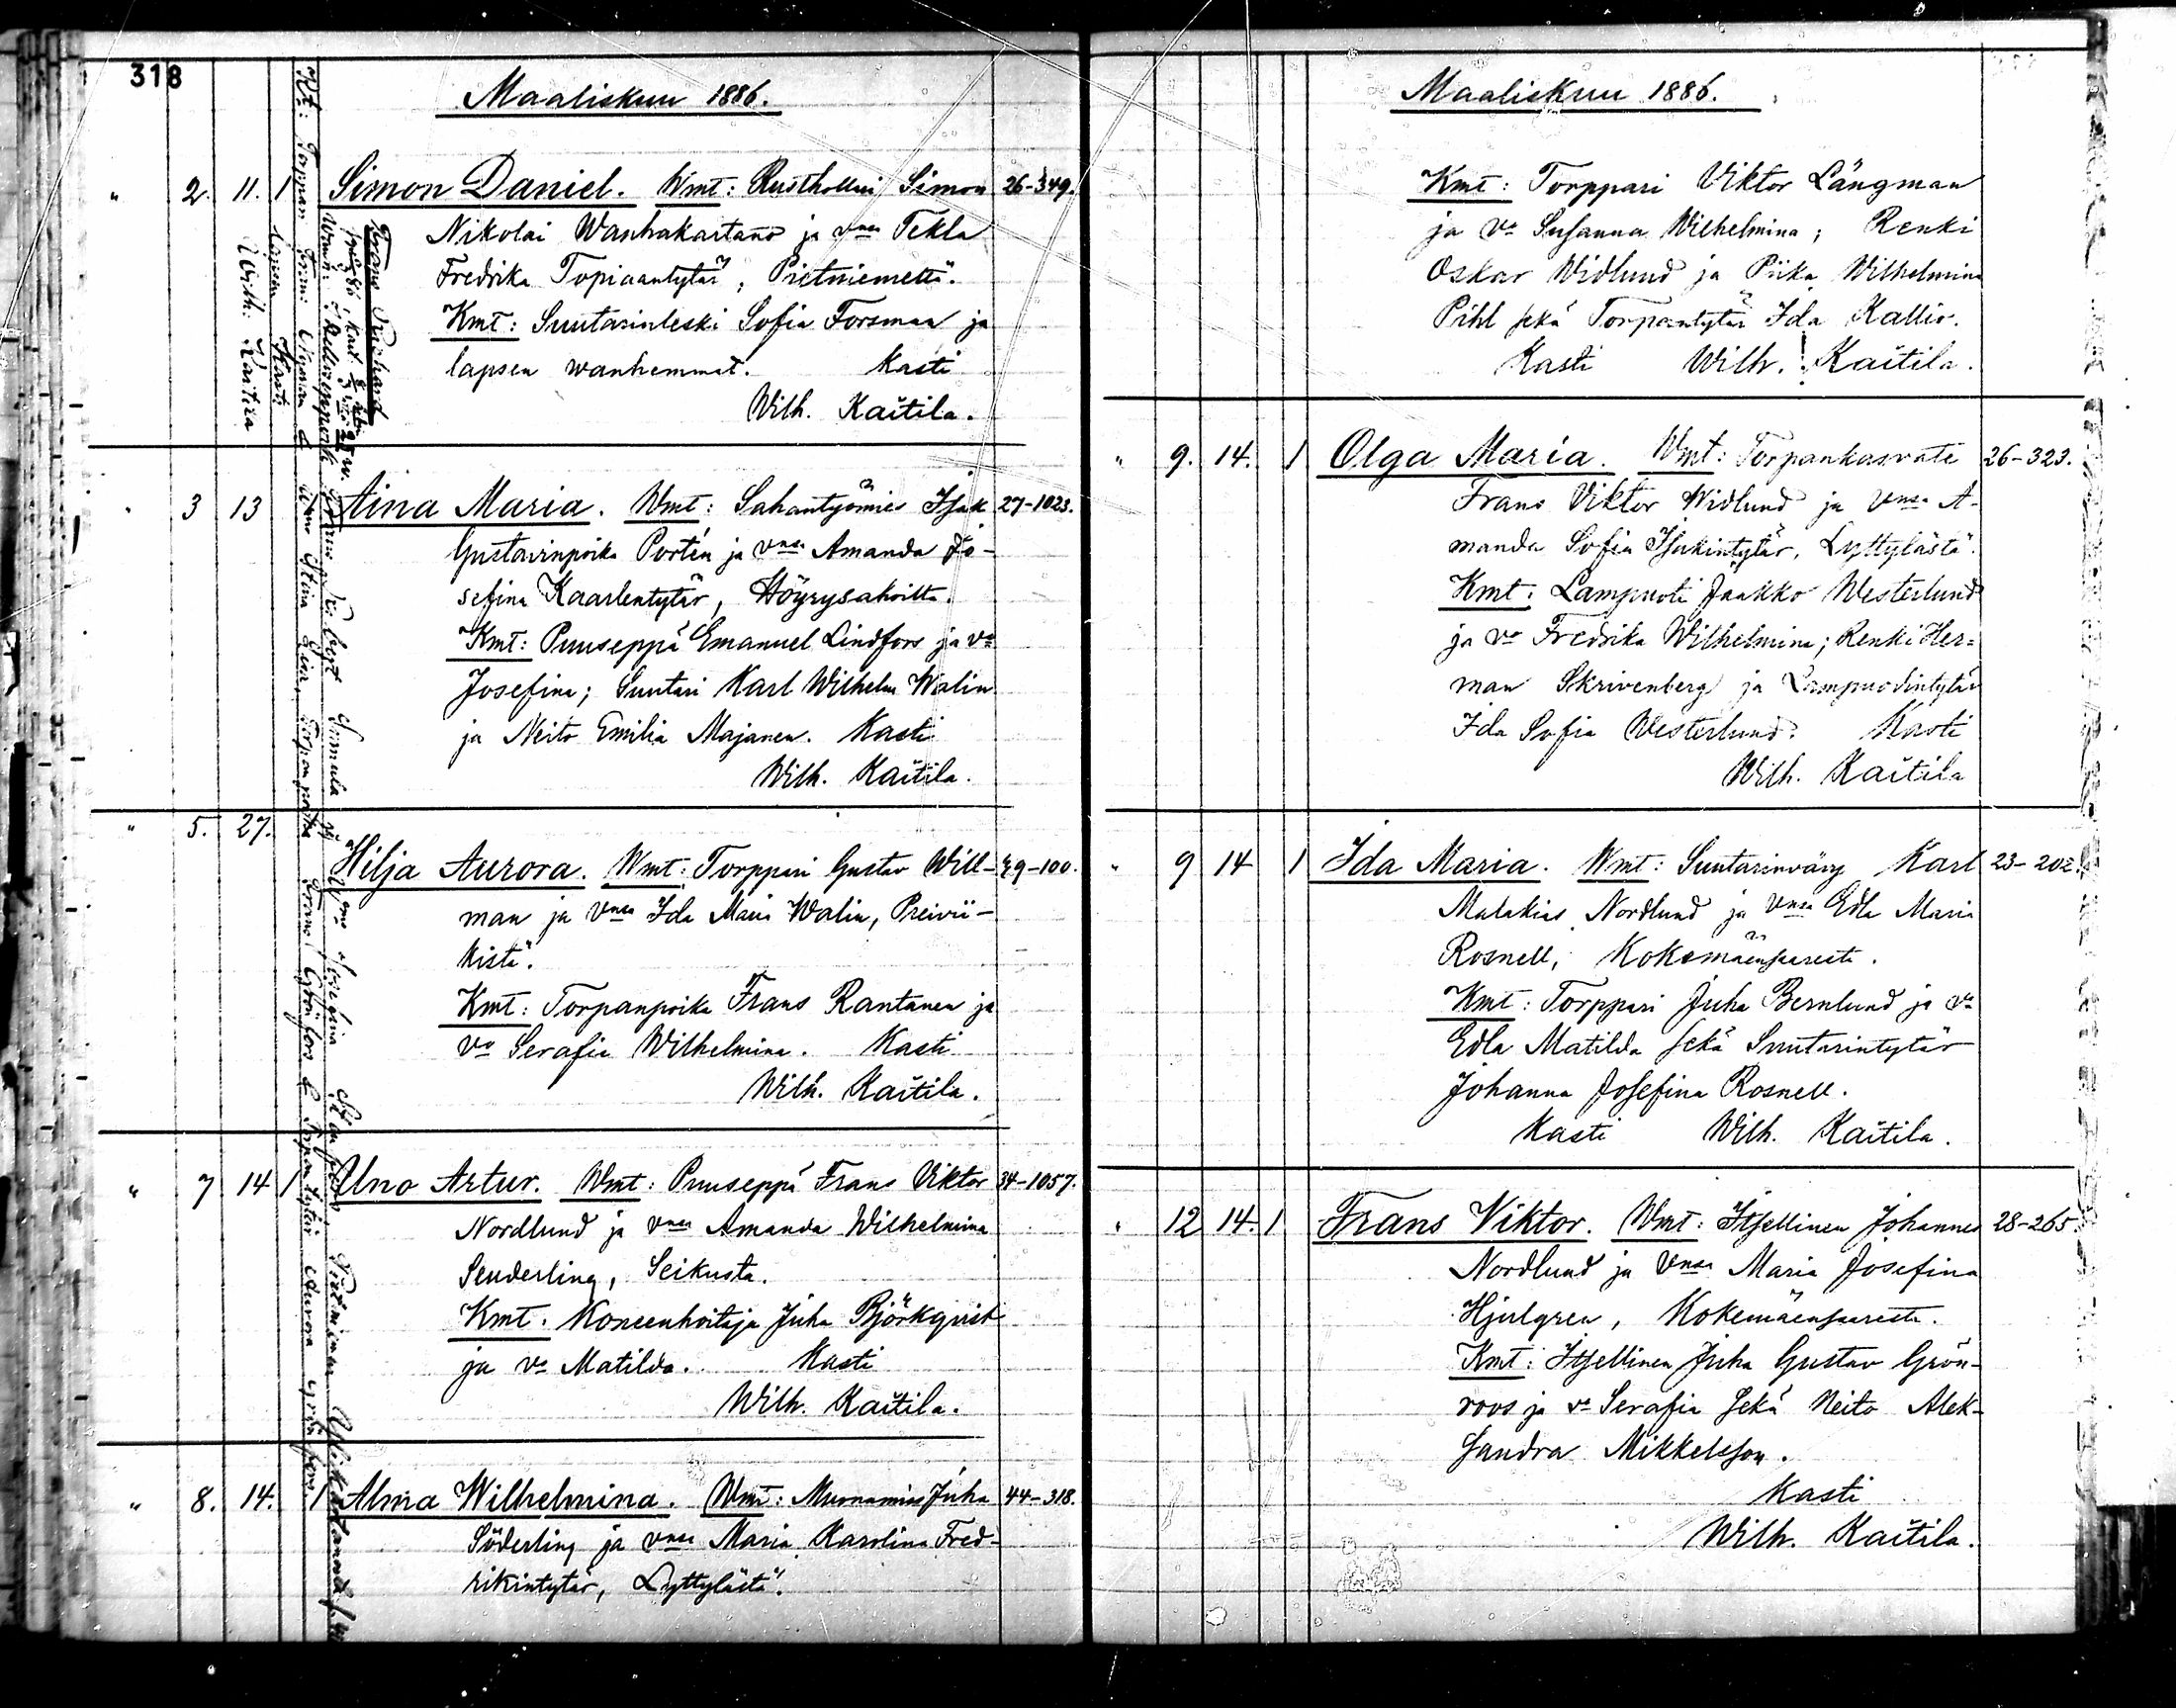 318
Maaliskuu 1886.
" 2. 11. 1 Simon Daniel. Wmt: Rusthollari Simon 26-349.
Nikolai Wanhakartano ja vnsa Tekla
Fredrika Topiaantytär, Pietniemeltä.
Kmt: Suutarinleski Sofia Forsman ja
lapsen wanhemmat. Kasti
Wilh. Kaitila.
" 3 13 Aina Maria. Wmt: Sahantyömies Isak 27-1023.
Gustavinpoika Portén ja vnsa Amanda Jo-
sefina Kaarlentytär, Höyrysahoilta.
Kmt: Puuseppä Emanuel Lindfors ja vo
Josefina; Suutari Karl Wilhelm Walin
ja Neito Emilia Majanen. Kasti
Wilh. Kaitila.
" 5. 27. Hilja Aurora. Wmt: Torppari Gustav Will- 49-100.
man ja vnsa Ida Maria Walin, Preivii-
kistä.
Kmt: Torpanpoika Frans Rantanen ja
vo Serafia Wilhelmina. Kasti
Wilh. Kaitila.
" 7 14 1 Uno Artur. Wmt: Puuseppä Frans Viktor 34-1057.
Nordlund ja vnsa Amanda Wilhelmina
Seuderling, Seikusta.
Kmt. Koneenhoitaja Juha Björkqvist
ja vo Matilda. Kasti
Wilh. Kaitila.
" 8. 14. 1 Alma Wilhelmina. Wmt: Muonamies Juha 44-318.
Söderling ja vnsa Maria Karolina Fred-
rikintytär, Lyttylästä.
Frans Richard
Wilh. Kaitila
Maaliskuu 1886.
Kmt: Torppari Viktor Långman
ja vo Susanna Wilhelmina; Renki
Oskar Widlund ja Piika Wilhelmina
Pihl sekä Torpantytär Ida Kallio.
Kasti Wilh. Kaitila.
" 9. 14. 1 Olga Maria. Wmt: Torpankasvatti 26-323.
Frans Viktor Widlund ja vnsa A-
manda Sofia Isakintytär, Lyttylästä.
Kmt: Lampuoti Jaakko Westerlund
ja vo Fredrika Wilhelmina; Renki Her=
man Skrivenberg ja Lampuodintytär
Ida Sofia Westerlund. Kasti
Wilh. Kaitila
" 9 14 1 Ida Maria. Wmt: Suutarinvävy Karl 23-202.
Malakias Nordlund ja vnsa Edla Maria
Rosnell, Kokemäensaaresta.
Kmt: Torppari Juha Bernlund ja vo
Edla Matilda sekä Suutarintytär
Johanna Josefina Rosnell.
Kasti Wilh. Kaitila.
" 12 14. 1 Frans Viktor. Wmt: Itsellinen Johannes 28-265.
Nordlund ja vnsa Maria Josefina
Hjulgren, Kokemäensaaresta.
Kmt: Itsellinen Juha Gustav Grön-
roos ja vo Serafia sekä Neito Alek-
sandra Mikkelsson.
Kasti
Wilh. Kaitila.